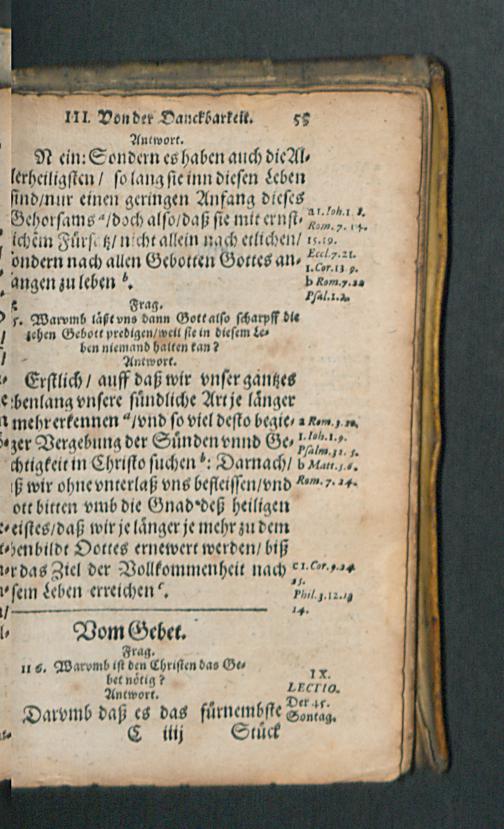 III. Von der Danckbarkeit. 55
Antwort.
Nein: Sondern es haben auch die Al-
lerheiligsten / so lang sie inn diesen Leben
sind / nur einen geringen Anfang dieses
Gehorsams a / doch also / daß sie mit ernst-
ichem Fürsatz / nicht allein nach etlichen /
ondern nach allen Gebotten Gottes an-
angen zu leben b.
a 1. Ioh. 1. 8.
Rom. 7. 14.
15. 19.
Eccl. 7. 21.
1. Cor. 13. 9.
b Rom. 7. 22
Psal. 1. 2.
Frag.
5. Warumb läßt vns dann Gott also scharpff die
zehen Gebott predigen / weil sie in diesem Le-
ben niemand halten kan?
Antwort.
Erstlich / auff daß wir vnser gantzes
benlang vnsere sündliche Art je länger
mehr erkennen a / vnd so viel desto begie-
zer Vergebung der Sünden vnnd Ge-
chtigkeit in Christo suchen b: Darnach /
ß wir ohne vnterlaß vns befleissen / vnd
ott bitten vmb die Gnad deß heiligen
eistes / daß wir je länger je mehr zu dem
benbildt Gottes ernewert werden / biß
r das Ziel der Vollkommenheit nach
sem Leben erreichen c.
a Rom. 3. 20.
1. Ioh. 1. 9.
Psalm. 32. 5.
b Matt. 5. 6.
Rom. 7. 24.
c 1. Cor. 9. 24
25.
Phil. 3. 12. 13
14.
Vom Gebet.
Frag.
116. Warvmb ist den Christen das Ge-
bet nötig?
Antwort.
Darvmb daß es das fürnembste
IX.
LECTIO.
Der 45.
Sontag.
C iiij Stück